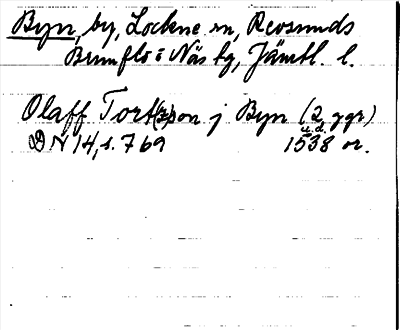 Byn, by, Lockne sn, Revsunds
Brunflo o Näs tg, Jämtl. l.
Olaff Torst(z)on j Byn (2 ggr)
u.d.
DN 14, s. 769 1538 or.